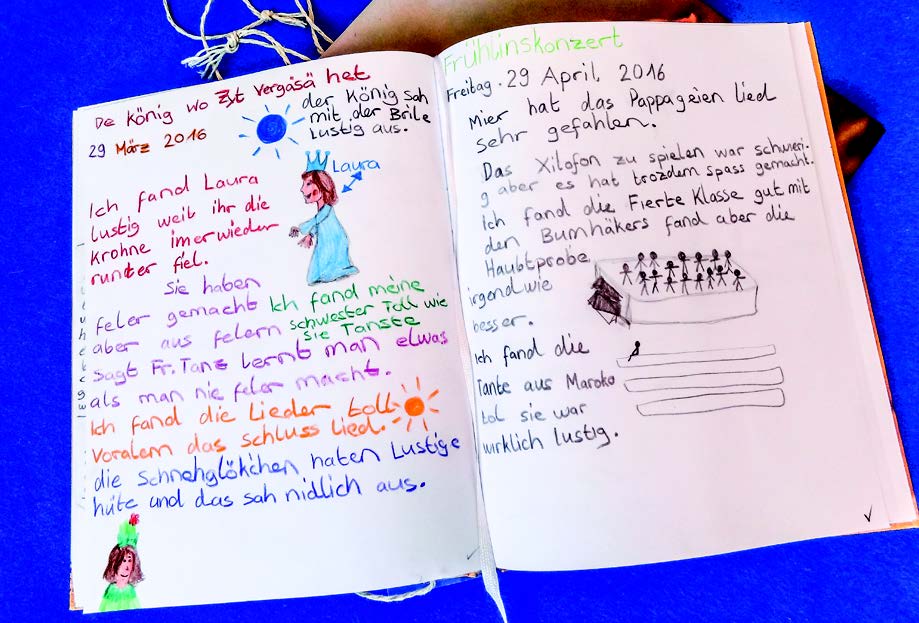 De König wo Zyt vergäsä het
29 März 2016
der König sah
mit der Brile
Lustig aus.
Laura
Ich fand Laura
lustig weil ihr die
krohne imerwieder
runter fiel.
Sie haben
feler gemacht
aber aus felern
sagt Fr. Tanz lernt man etwas
als man nie feler macht.
Ich fand meine
schwester Toll wie
sie Tanste
Ich fand die Lieder toll
voralem das schluss lied.
die Schnehglökchen haten Lustige
hüte und das sah nidlich aus.
Frühlinskonzert
Freitag. 29 April 2016
Mier hat das Pappageien lied
sehr gefahlen.
Das Xilofon zu spielen war schwieri-
g aber es hat trozdem spass gemacht.
Ich fand die Fierte Klasse gut mit
den Bumhäkers fand aber die
Haubtprobe
irgendwie
besser.
Ich fand die
Tante aus Maroko
tol sie war
wirklich lustig.